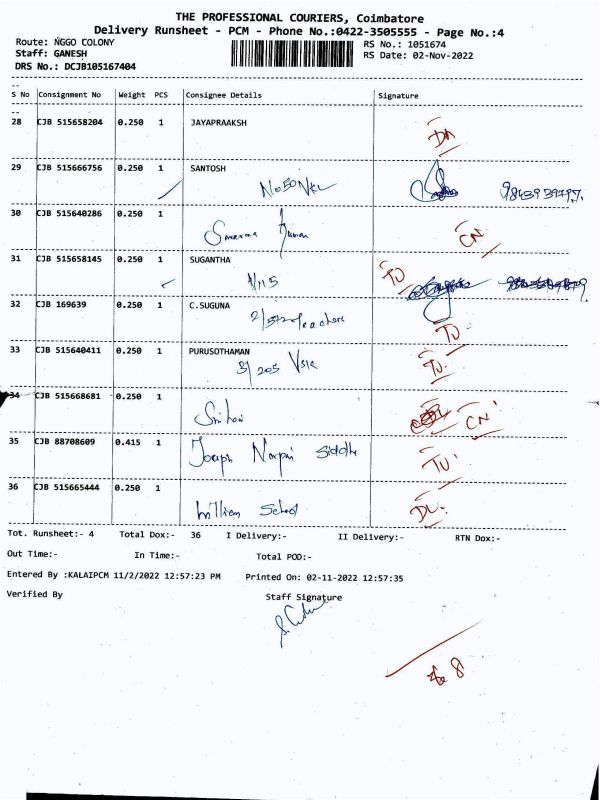 THE PROFESSIONAL COURIERS, Coimbatore
Delivery Runsheet - PCM - Phone No.:0422-3505555 - Page No.:4
Route: NGGO COLONY RS No.: 1051674
Staff: GANESH RS Date: 02-Nov-2022
DRS No.: DCJB105167404
S No Consignment No Weight PCS Consignee Details Signature
28 CJB 515658204 0.250 1 JAYAPRAAKSH
29 CJB 515666756 0.250 1 SANTOSH
No50
30 CJB 515640286 0.250 1
Kumar CN
31 CJB 515658145 0.250 1 SUGANTHA
32 CJB 169639 0.250 1 C.SUGUNA
33 CJB 515640411 0.250 1 PURUSOTHAMAN
3/205
34 CJB 515668681 0.250 1
CN
35 CJB 88708609 0.415 1
Joseph
36 CJB 515665444 0.250 1
William School DL
Tot. Runsheet:- 4 Total Dox:- 36 I Delivery:- II Delivery:- RTN Dox:-
Out Time:- In Time:- Total POD:-
Entered By :KALAIPCM 11/2/2022 12:57:23 PM Printed On: 02-11-2022 12:57:35
Verified By Staff Signature
8